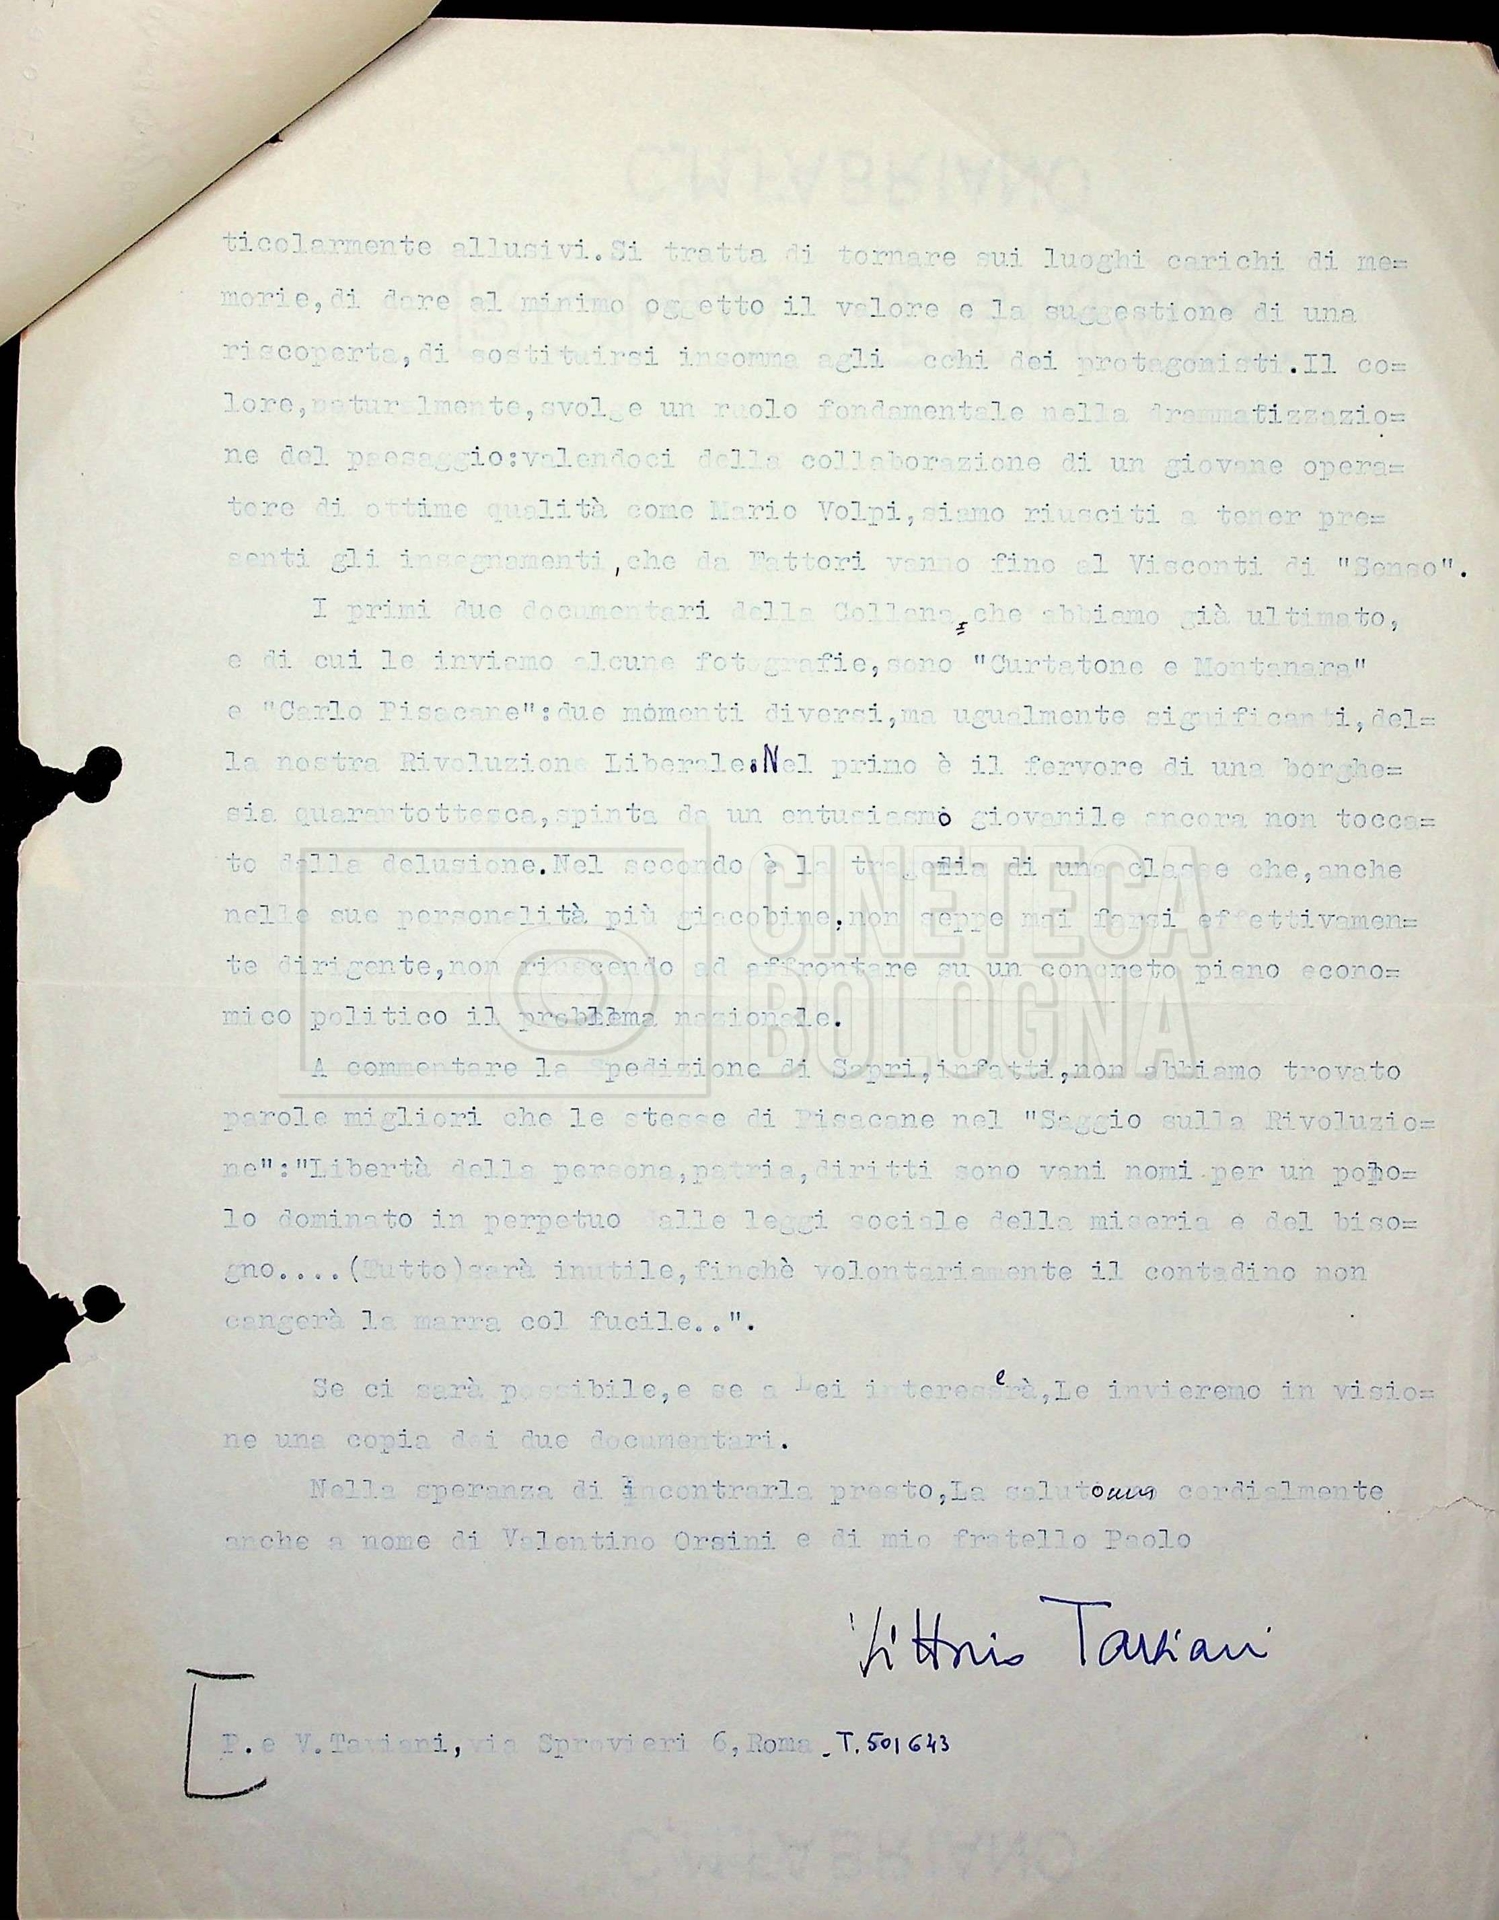 ticolarmente allusivi.Si tratta di tornare sui luoghi carichi di me=
morie,di dare al minimo oggetto il valore e la suggestione di una
riscoperta,di sostituirsi insomma agli cchi dei protagonisti.Il co=
lore,naturalmente,svolge un ruolo fondamentale nella drammatizzazio=
ne del paesaggio:valendoci della collaborazione di un giovane opera=
tore di ottime qualità come Mario Volpi,siamo riusciti a tener pre=
senti gli insegnamenti,che da Fattori vanno fino al Visconti di "Senso".
I primi due documentari della Collana,che abbiamo già ultimato,
e di cui le inviamo alcune fotografie,sono "Curtatone e Montanara"
e "Carlo Pisacane":due momenti diversi,ma ugualmente significanti,del=
la nostra Rivoluzione Liberale.Nel primo è il fervore di una borghe=
sia quarantottesca,spinta da un entusiasmo giovanile ancora non tocca=
to dalla delusione.Nel secondo è la tragedia di una classe che,anche
nelle sue personalità più giacobine,non seppe mai farsi effettivamen=
te dirigente,non riuscendo ad affrontare su un concreto piano econo=
mico politico il problema nazionale.
A commentare la Spedizione di Sapri,infatti,non abbiamo trovato
parole migliori che le stesse di Pisacane nel "Saggio sulla Rivoluzio=
ne":"Libertà della persona,patria,diritti sono vani nomi per un popo=
lo dominato in perpetuo dalle leggi sociale della miseria e del biso=
gno....(Tutto)sarà inutile,finchè volontariamente il contadino non
cangerà la marra col fucile..".
Se ci sarà possibile,e se a Lei interesserà,Le invieremo in visio=
ne una copia dei due documentari.
Nella speranza di incontrarla presto,La salutiamo cordialmente
anche a nome di Valentino Orsini e di mio fratello Paolo
Vittorio Taviani
P.e V.Taviani,via Sprovieri 6,Roma - T.501643
CINETECA
BOLOGNA
C.M.FABRIANO
C.M.FABRIANO